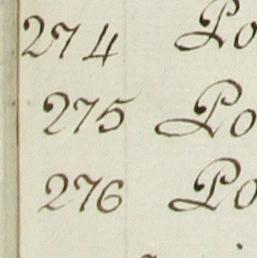 274 Po
275 Po
276 Po